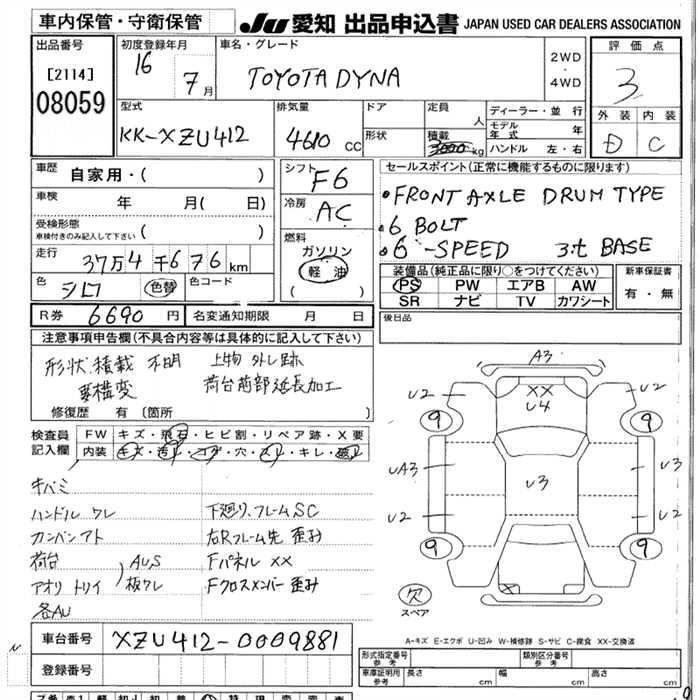 車内保管・守衛保管
JU 愛知 出品申込書 JAPAN USED CAR DEALERS ASSOCIATION
出品番号
[2114]
08059
初度登録年月
16 7月
車名・グレード
TOYOTA DYNA
2WD
・
4WD
評価点
3
外装 内装
D C
型式
KK-XZU412
排気量
4610 CC
ドア
形状
定員 人
積載 3000 kg
ディーラー・並行
モデル年式 年
ハンドル 左・右
車歴 自家用・( )
車検 年 月( 日)
受検形態
車検付きのみ記入して下さい ( )
走行 37万4千676km
色 シロ 色替 色コード
シフト F6
冷房 AC
燃料
ガソリン
軽油
( )
セールスポイント(正常に機能するものに限り)
・FRONT AXLE DRUM TYPE
・6 BOLT
・6-SPEED 3.t BASE
装備品(純正品に限り○をつけてください)
PS PW エアB AW
SR ナビ TV カワシート
新車保証書
有・無
R券 6690円 名変通知期限 月 日
後日品
注意事項申告欄(不具合内容等は具体的に記入して下さい)
形状.積載 不明 上物 外し跡
要構変 荷台前部延長加工
修復歴 有 〔箇所 〕
検査員記入欄
FW キズ・飛石・ヒビ割・リペア跡・X要
内装 キズ・汚レ・コゲ・穴・スレ・キレ・破レ
キバミ
ハンドル ワレ 下廻り、フレームSC
カンバンアト 右Rフレーム先 歪み
荷台 AU,S Fパネル XX
アオリ トリイ 板ワレ Fクロスメンバー 歪み
各AU
A3
U2 XX U2
U4
9 9
UA3 U3 U3
U2 U2
9 9
X
欠
スペア
A-キズ E-エクボ U-凹み W-補修跡 S-サビ C-腐食 XX-交換済
車台番号 XZU412-0009881
登録番号
型式指定番号 参考
類別区分番号 参考
車庫証明用 参考 長さ cm 幅 cm 高さ cm